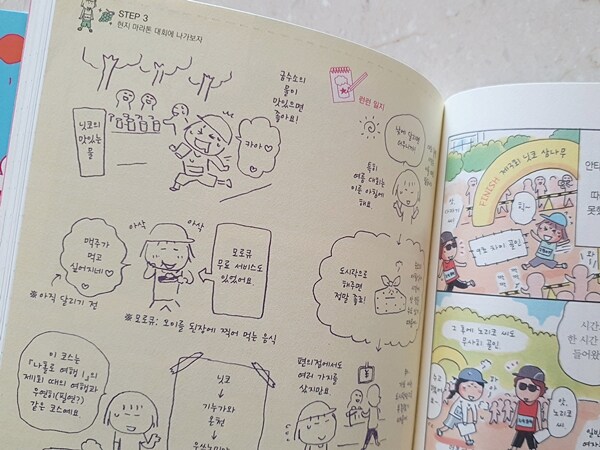 STEP 3
현지 마라톤 대회에 나가보자
급수소의
물이
맛있으면
좋아요!
닛코의
맛있는
물
캬아♡
런런 일지
낮에 달리면
더우니까
특히
여름 대회는
이른 아침에
해요
맥주가
먹고
싶어지네♡
※아직 달리기 전
아삭
아삭
모로큐
무료 서비스도
있었어요
※모로큐: 오이를 된장에 찍어 먹는 음식
도시락으로
돼주면
정말 좋죠!
이 코스는
『나홀로 여행』의
제1회 때의 여행과
우연히(필연?)
같은 코스예요.
닛코
↓
기누가와
온천
↓
편의점에서도
여러 가지를
샀지만요
FINISH 제3회 닛코 삼나무
9초 차이 골인
그 후에 노리코 씨도
무사히 골인
앗,
노리코
씨
시간
한 시간
들어왔